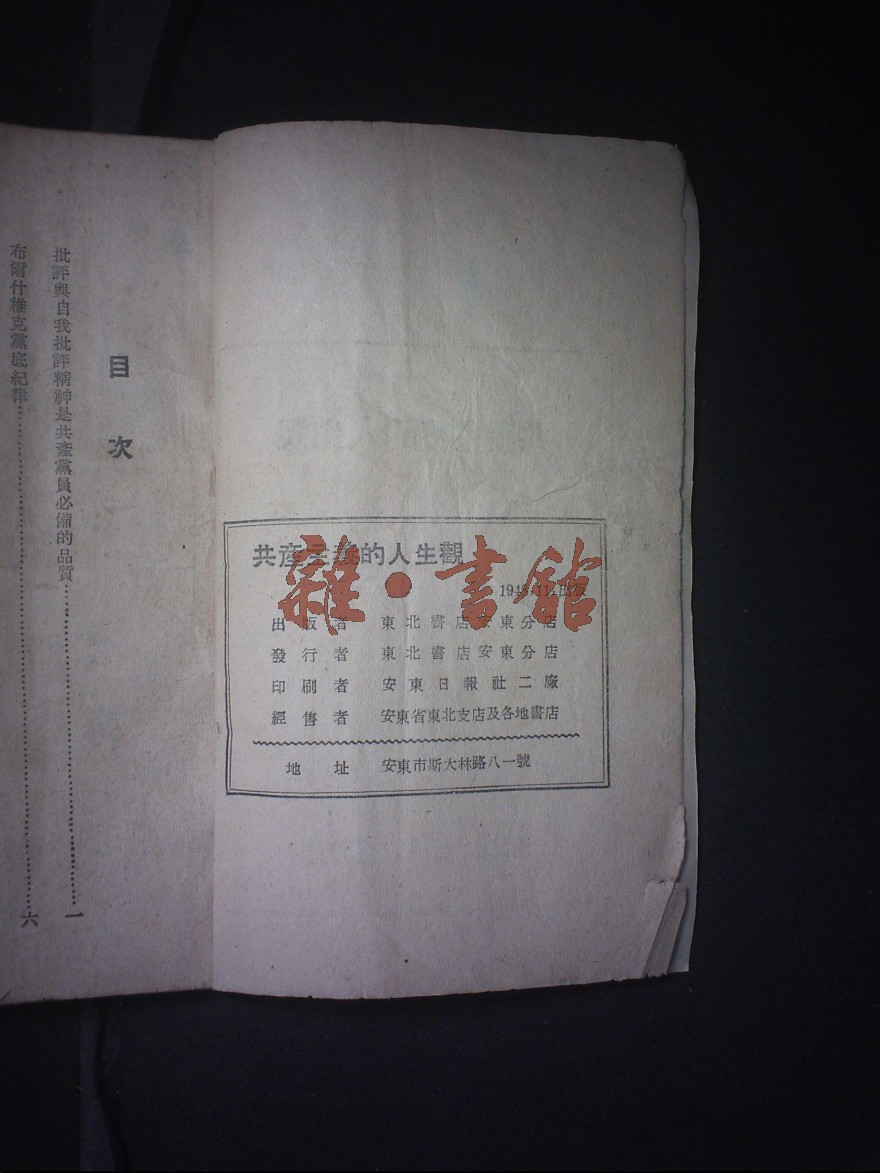 共產主義的人生觀
出版者 東北書店安東分店
發行者 東北書店安東分店
印刷者 安東日報社二廠
經售者 安東省東北支店及各地書店
地址 安東市斯大林路八一號
雜·書館
目次
批評與自我批評精神是共產黨員必備的品質……一
布爾什維克黨底紀律……六